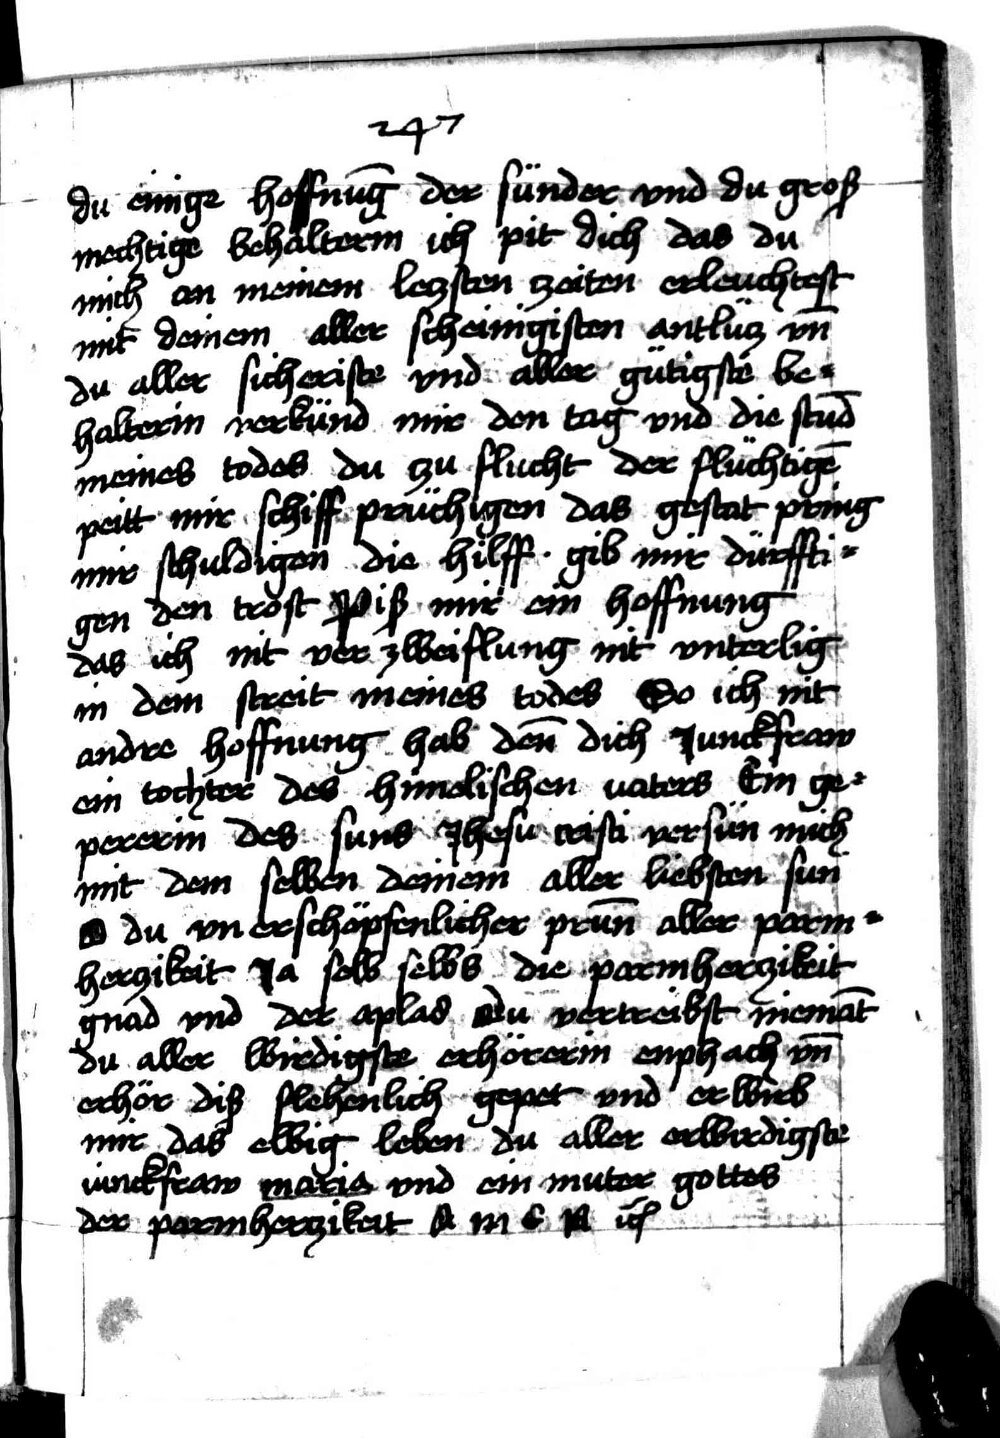 247
du einige hoffnūg der sünder vnd du groß
mechtige behalterin ich pit dich das du
mich an meinem letzsten tzeiten erleuchtest
mit deinem aller scheinigisten antlütz vn̄
du aller sicheriste vnd aller gütigste be=
halterin verkünd mir den tag vnd die stūd
meines todes du tzu flucht der flüchtigē
peitt mir schiff prüchigen das gestat pring
mir schuldigen die hilff · gib mir dürffti=
gen den trost Piß mir ein hoffnung
das ich nit ver zweiflung nit vnterlig
in dem streit meines todes So ich nit
andre hoffnung hab den̄ dich Junckfraw
ein tochter des himelischen vaters Ein ge=
pererin des suns Jhesu cristi versün mich
mit dem selben deinem aller liebsten sun
O du vn erschöpfenlicher prun̄ aller parm=
hertzikeit Ja selb selbs die parmhertzikeit
gnad vnd der aplas Du vertreibst niemāt
du aller wirdigste erhörerin enphach vn̄
erhör diß flehenlich gepet vnd erwirb
mir das ewig leben du aller erwirdigste
iunckfraw maria vnd ein muter gottes
der parmhertzikeit A m e n